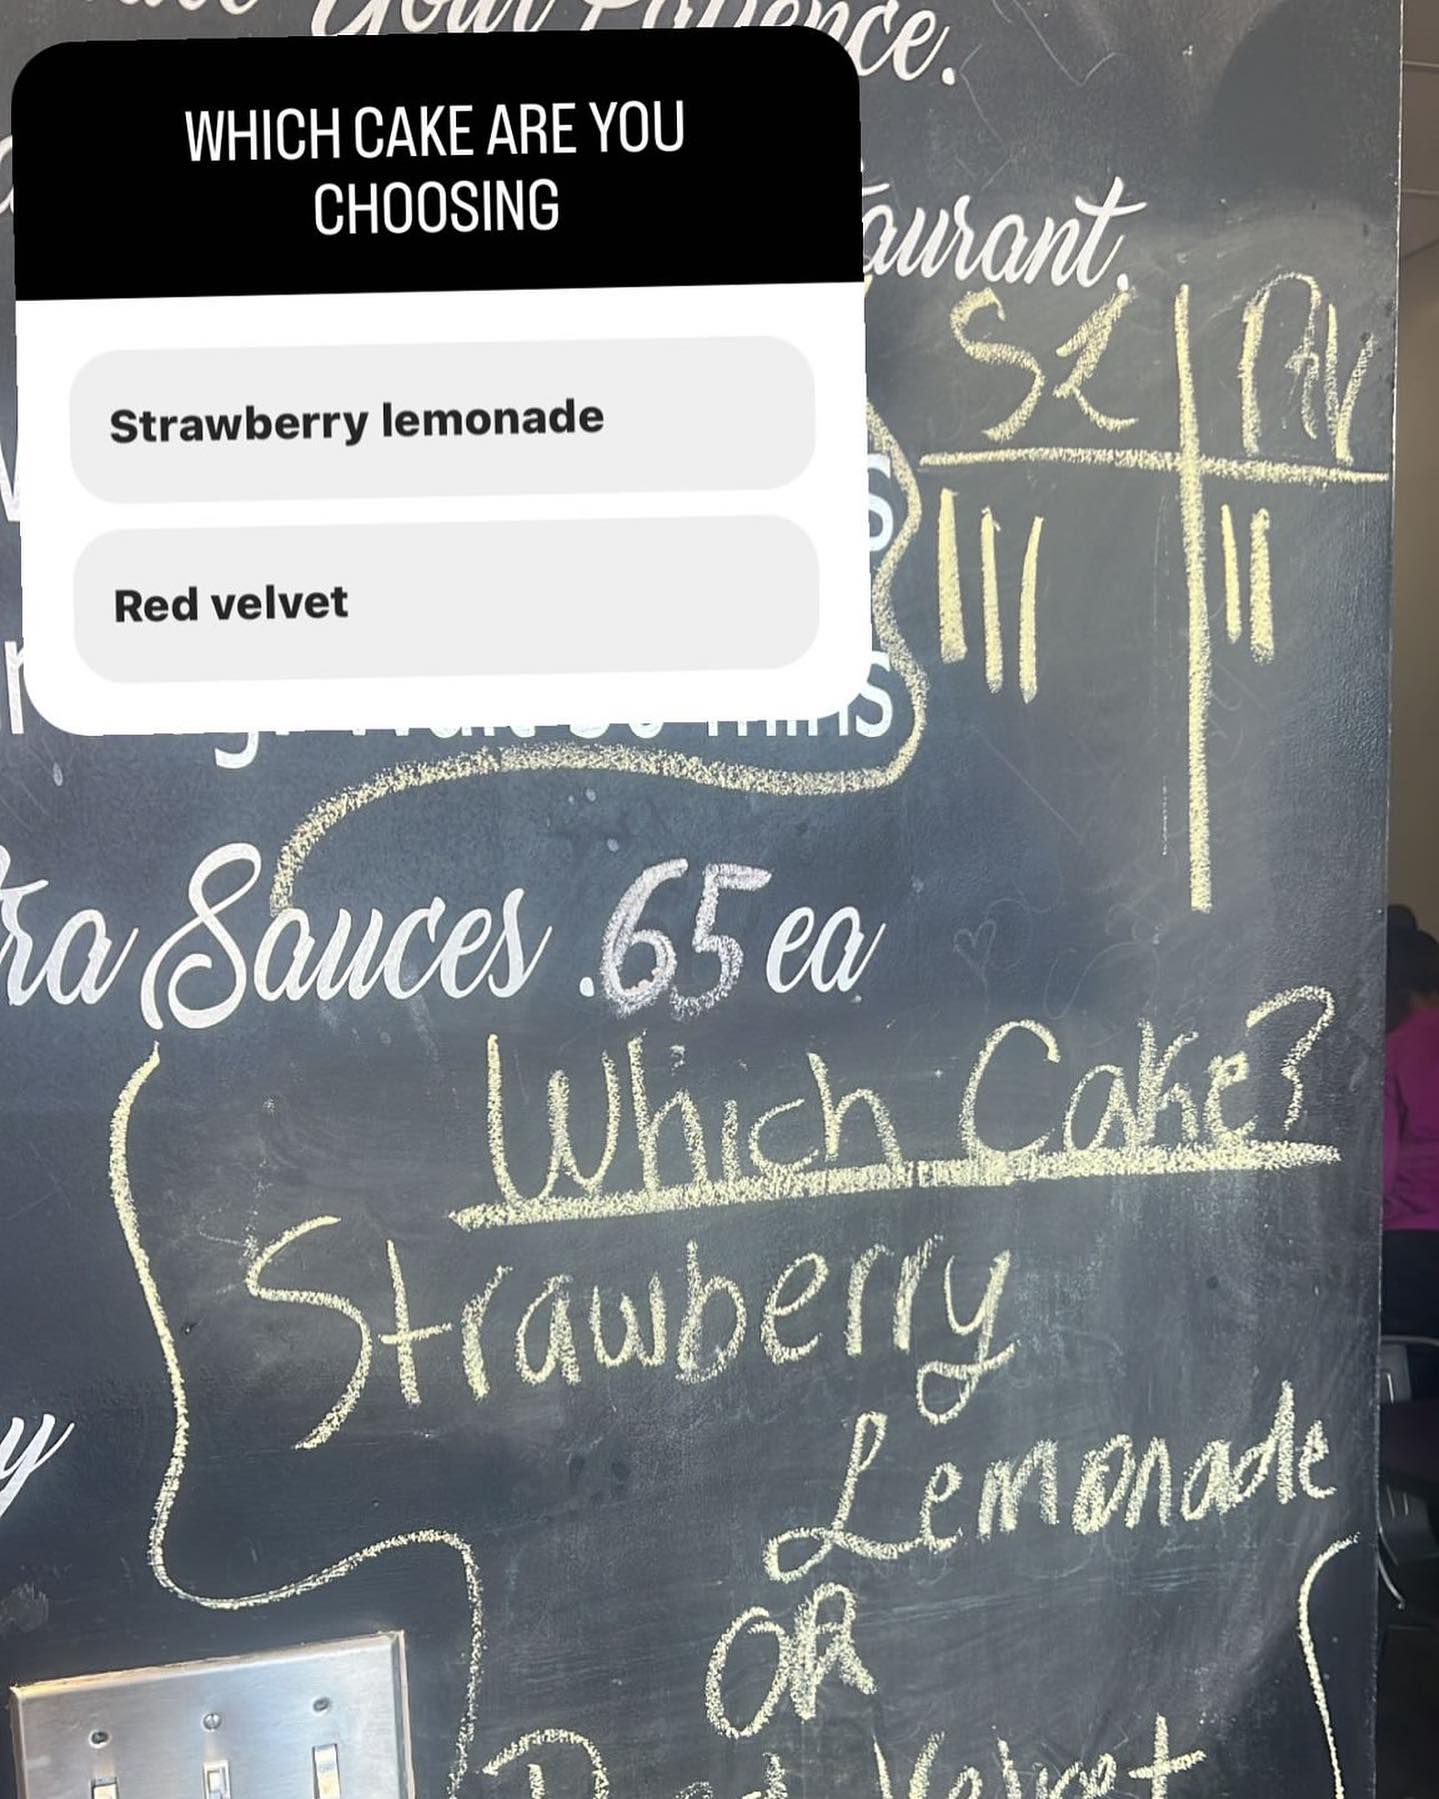 WHICH CAKE ARE YOU
CHOOSING
Strawberry lemonade
Red velvet
SL RV
Sauces .65 ea
Which Cake?
Strawberry
Lemonade
OR
Red Velvet